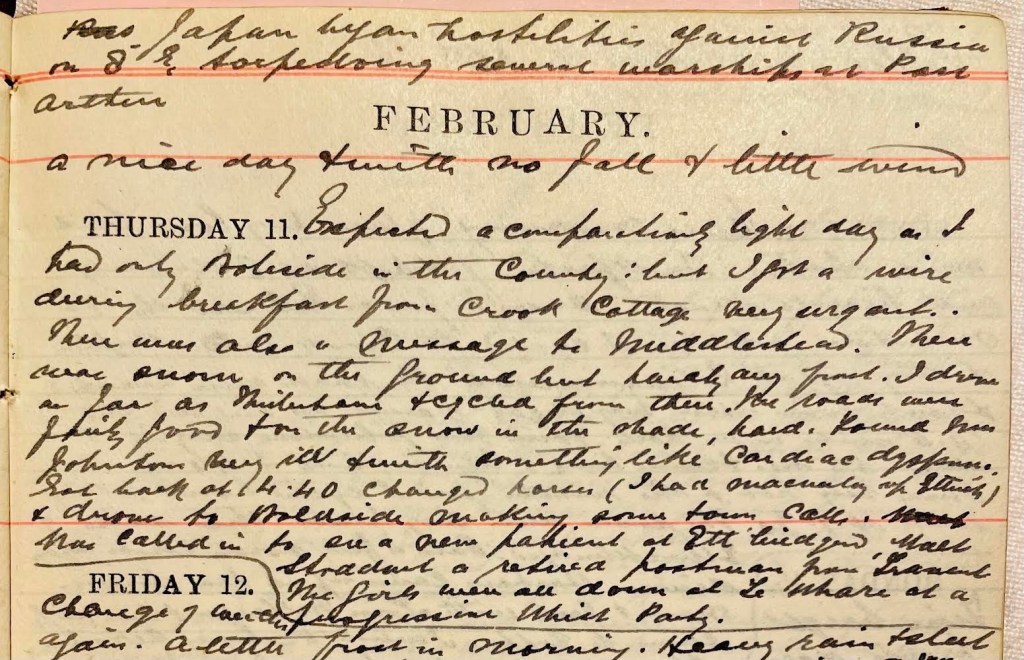 Japan began hostilities against Russia
on 8th torpedoing several warships at Port
Arthur
FEBRUARY.
a nice day & with no fall & little wind
THURSDAY 11. Expected a comparatively light day as I
had only Boleside in the County: but I got a wire
during breakfast from Crook Cottage very urgent..
There was also a message to Middlestead. There
was snow on the ground but hardly any frost. I drove
as far as & cycled from there. The roads were
fairly good & on the snow in the shade, hard. Found Mrs
Johnston very ill & with something like Cardiac dyspnoea.
Got back at 4.40 changed horses (I had up Ettrick)
& drove to Boleside making some town calls.
Was called in to see a new patient at Ett bridgend, Walt
Stoddart a retired postman from
FRIDAY 12. The Girls were all down at Le Whare at a
Change of weather progressive Whist Party.
again. A little frost in morning. Heavy rain & sleet